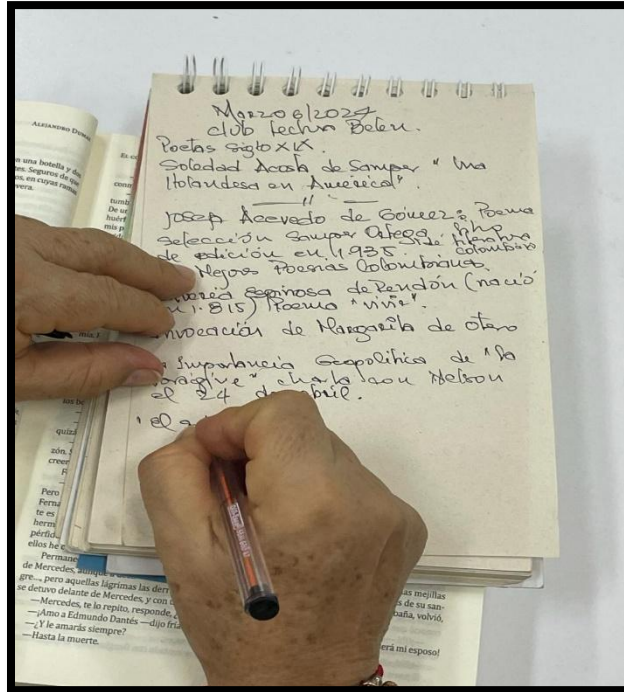 Marzo 6/2024
Club Lectura Belen.
Poetas Siglo XIX.
Soledad Acosta de Samper "Una
Holandesa en America".
Josefa Acevedo de Gómez: Poema
Selección Samper Ortega, de literatura
de edición en 1935. colombiana
Mejores Poesías Colombianas.
Espinosa de Rendón (nació
1.815) Poema "vivir".
Invocación de Margarita de Otero
Importancia Geopolítica de "la
charla con Nelson
el 24 de abril.
ALEJANDRO
una botella y
tes. Seguros de que
os, en cuyas ramas
vera.
quizá
zón.
creer
Pero
te es
herm
pérfid
ellos he
Permane
de Mercedes, aunque
gre..., pero aquellas lágrimas las
se detuvo delante de Mercedes, y con
—Mercedes, te lo repito, responde,
—¡Amo a Edmundo Dantés —dijo
—¿Y le amarás siempre?
—Hasta la muerte.
as mejillas
s de su san-
baña, volvió,
erá mi esposo!